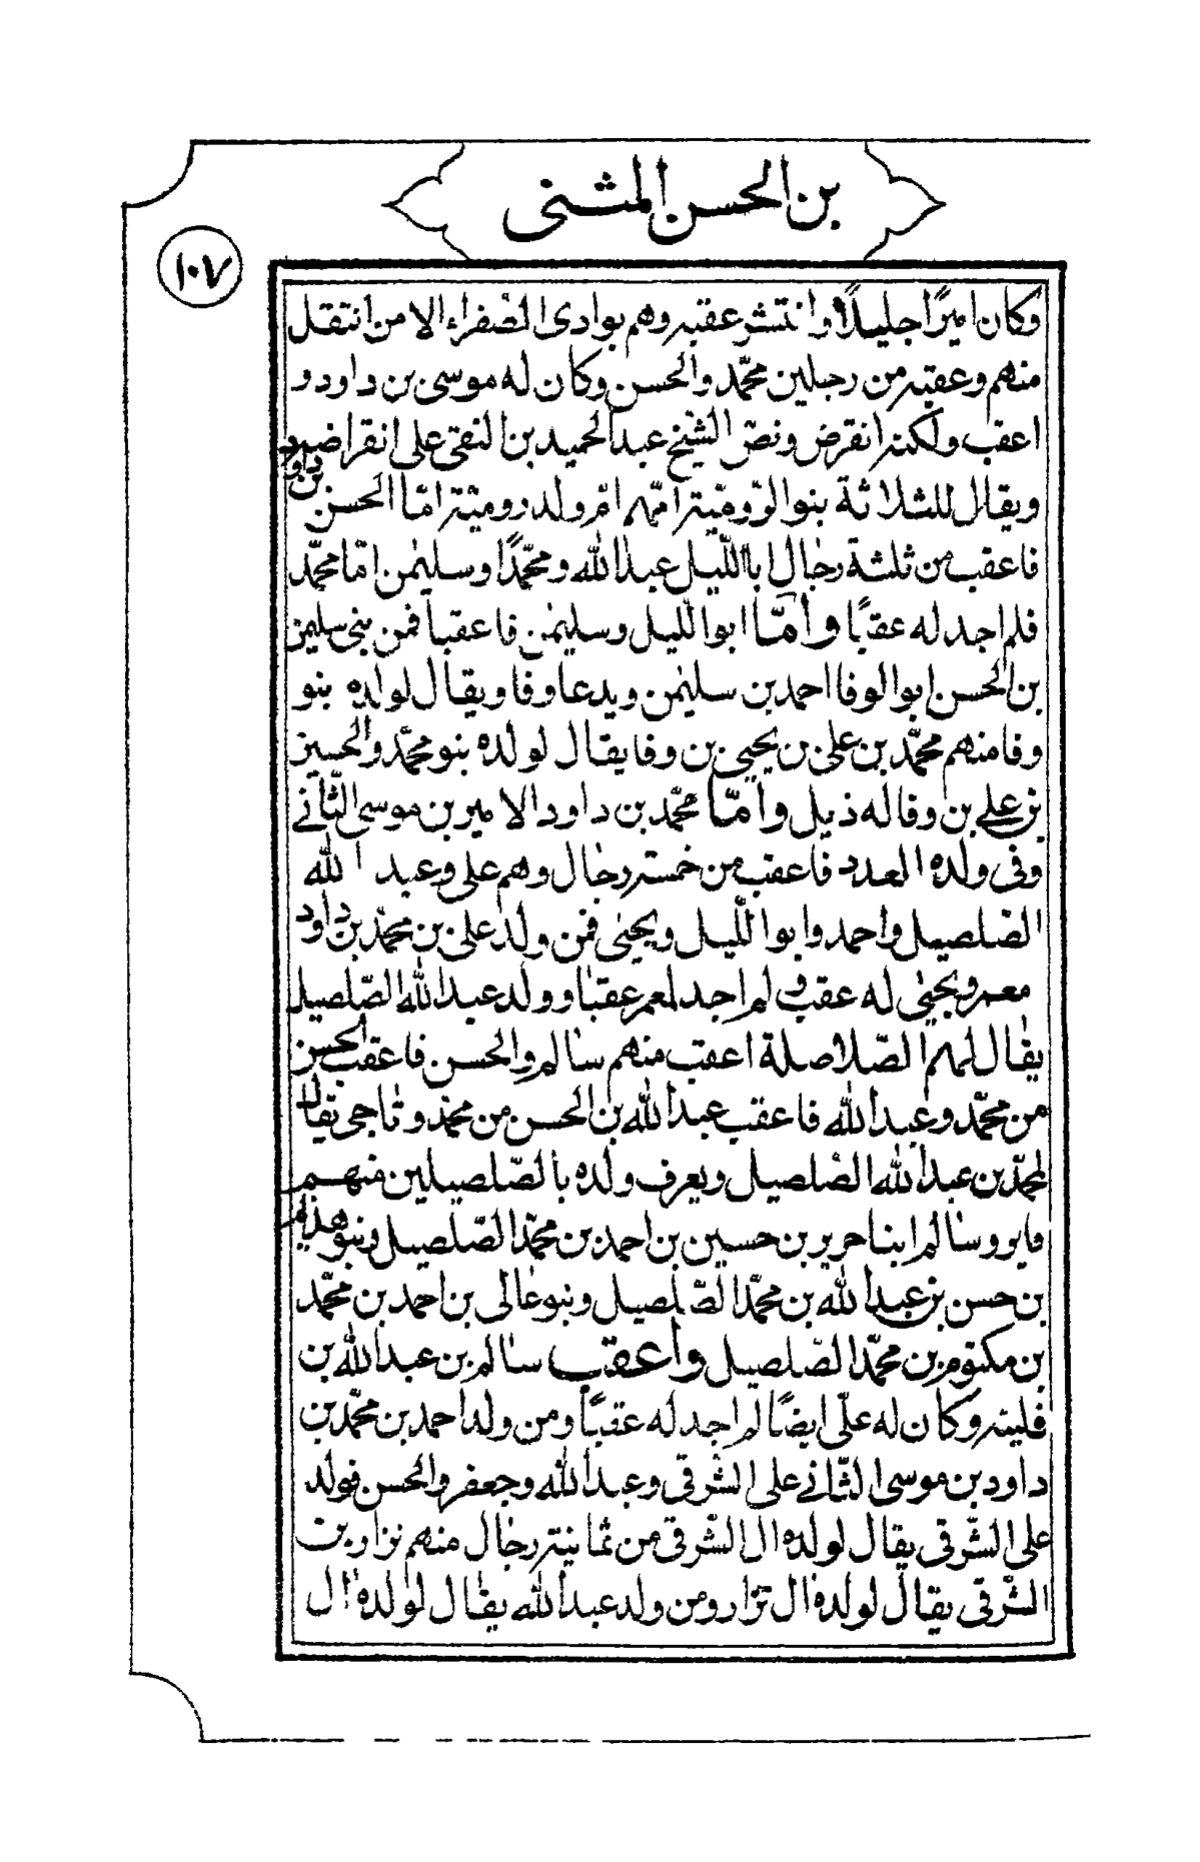 بن الحسن المثنى
١٠٧
وكان اميرًا جليلًا وانتشر عقبه وهم بوادى الصفراء الا من انتقل
منهم وعقبه من رجلين محمّد والحسن وكان له موسى بن داود و
اعقب ولكنه انقرض ونصّ الشيخ عبد الحميد بن التقى على انقراضه
ويقال للثلاثة بنو الرّوميّة امّهم امّ ولد روميّة امّا الحسن بن داود
فاعقب من ثلثة رجال ابا اللّيل عبد الله ومحمّدًا وسليمٰن امّا محمّد
فلم اجد له عقبًا وأمّا ابو اللّيل وسليمٰن فاعقبا فمن بنى سليمٰن
بن الحسن ابو الوفا احمد بن سليمٰن ويدعا وفا ويقال لولده بنو
وفا منهم محمّد بن على بن يحيى بن وفا يقال لولده بنو محمّد والحسين
بن على بن وفا له ذيل وأمّا محمّد بن داود الامير بن موسى الثّانى
وفى ولده العدد فاعقب من خمسة رجال وهم على وعبد الله
الصّلصيل واحمد وابو اللّيل ويحيى فمن ولد على بن محمّد بن داود
معمر ويحيى له عقب ولم اجد لمعمر عقبا وولد عبد الله الصّلصيل
يقال لهم الصّلاصلة اعقب منهم سالم والحسن فاعقب الحسن
من محمّد وعبد الله فاعقب عبد الله بن الحسن من محمّد وتاجى يقال
لمحمّد بن عبد الله الصّلصيل ويعرف ولده بالصّلصيلين منهم
فاير وسالم ابنا حرير بن حسين بن احمد بن محمّد الصّلصيل وبنو هذيم
بن حسن بن عبد الله بن محمّد الصّلصيل وبنو عالى بن احمد بن محمّد
بن مكتوم بن محمّد الصّلصيل واعقب سالم بن عبد الله بن
فليته وكان له علّى ايضًا لم اجد له عقبًا ومن ولد احمد بن محمّد بن
داود بن موسى الثّانى على الشّرقى وعبد الله وجعفر والحسن فولد
على الشّرقى يقال لولده ال الشّرقى من ثمانية رجال منهم نزار بن
الشّرقى يقال لولده ال نزار ومن ولد عبد الله يقال لولده ال